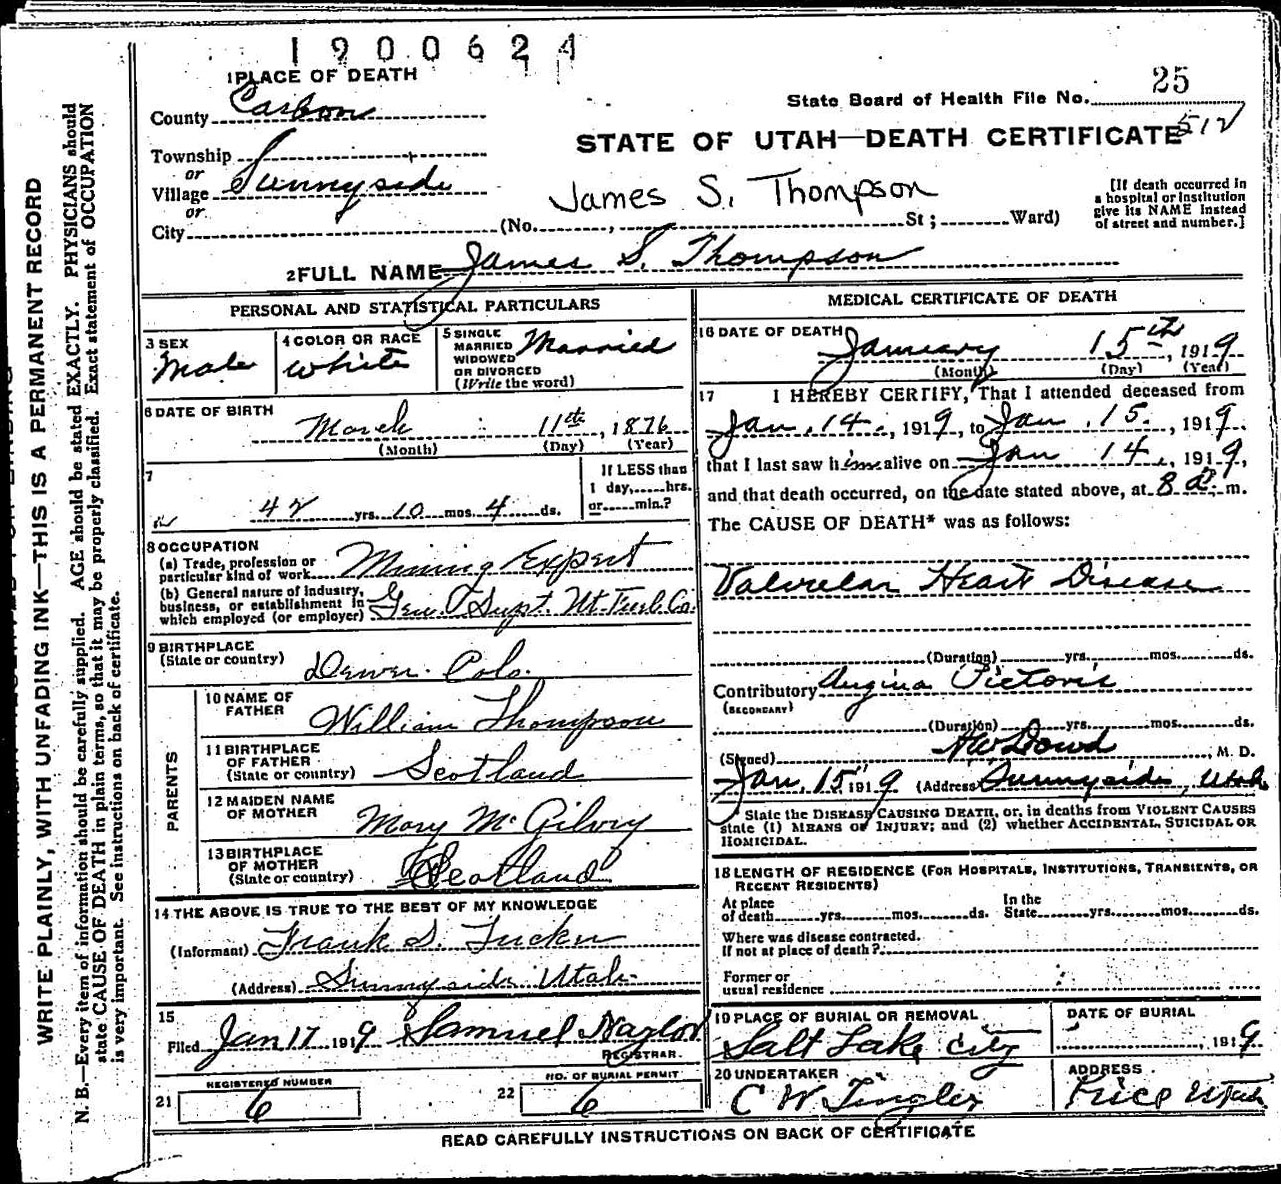 1900624
1 PLACE OF DEATH
25
State Board of Health File No.
County Carbon
STATE OF UTAH—DEATH CERTIFICATE 512
Township
or
Village Sunnyside
or
City
James S. Thompson
(No. , St; Ward)
[If death occurred in
a hospital or institution
give its NAME instead
of street and number.]
2 FULL NAME James S. Thompson
PERSONAL AND STATISTICAL PARTICULARS
3 SEX
Male
4 COLOR OR RACE
White
5 SINGLE
MARRIED
WIDOWED
OR DIVORCED
(Write the word)
Married
6 DATE OF BIRTH
March 11th, 1876
(Month) (Day) (Year)
7
42 yrs. 10 mos. 4 ds.
If LESS than
1 day, hrs.
or min.?
8 OCCUPATION
(a) Trade, profession or
particular kind of work Mining Expert
(b) General nature of industry,
business, or establishment in
which employed (or employer) Gen. Supt. Ut. Fuel Co.
9 BIRTHPLACE
(State or country) Denver. Colo.
PARENTS
10 NAME OF
FATHER William Thompson
11 BIRTHPLACE
OF FATHER
(State or country) Scotland
12 MAIDEN NAME
OF MOTHER Mary McGilvry
13 BIRTHPLACE
OF MOTHER
(State or country) Scotland
14 THE ABOVE IS TRUE TO THE BEST OF MY KNOWLEDGE
(Informant) Frank D. Tucker
(Address) Sunnyside Utah.
15
Filed Jan 17 1919 Samuel Naylor
REGISTRAR.
21 REGISTERED NUMBER
6
22 NO. OF BURIAL PERMIT
6
MEDICAL CERTIFICATE OF DEATH
16 DATE OF DEATH
January 15th, 1919
(Month) (Day) (Year)
17 I HEREBY CERTIFY, That I attended deceased from
Jan. 14., 1919, to Jan. 15., 1919.
that I last saw him alive on Jan 14., 1919,
and that death occurred, on the date stated above, at 8 a. m.
The CAUSE OF DEATH* was as follows:
Valvular Heart Disease
(Duration) yrs. mos. ds.
Contributory Angina Pictoris
(SECONDARY)
(Duration) yrs. mos. ds.
(Signed) A W Dowd, M. D.
Jan. 15" 1919 (Address) Sunnyside, Utah
* State the DISEASE CAUSING DEATH, or, in deaths from VIOLENT CAUSES
state (1) MEANS OF INJURY; and (2) whether ACCIDENTAL, SUICIDAL OR
HOMICIDAL.
18 LENGTH OF RESIDENCE (FOR HOSPITALS, INSTITUTIONS, TRANSIENTS, OR
RECENT RESIDENTS)
At place
of death yrs. mos. ds.
In the
State yrs. mos. ds.
Where was disease contracted.
If not at place of death?
Former or
usual residence
19 PLACE OF BURIAL OR REMOVAL
Salt Lake City
DATE OF BURIAL
, 1919
20 UNDERTAKER
C W Tingley
ADDRESS
Price Utah
READ CAREFULLY INSTRUCTIONS ON BACK OF CERTIFICATE
WRITE PLAINLY, WITH UNFADING INK—THIS IS A PERMANENT RECORD
N. B.—Every item of information should be carefully supplied. AGE should be stated EXACTLY. PHYSICIANS should
state CAUSE OF DEATH in plain terms, so that it may be properly classified. Exact statement of OCCUPATION
is very important. See instructions on back of certificate.